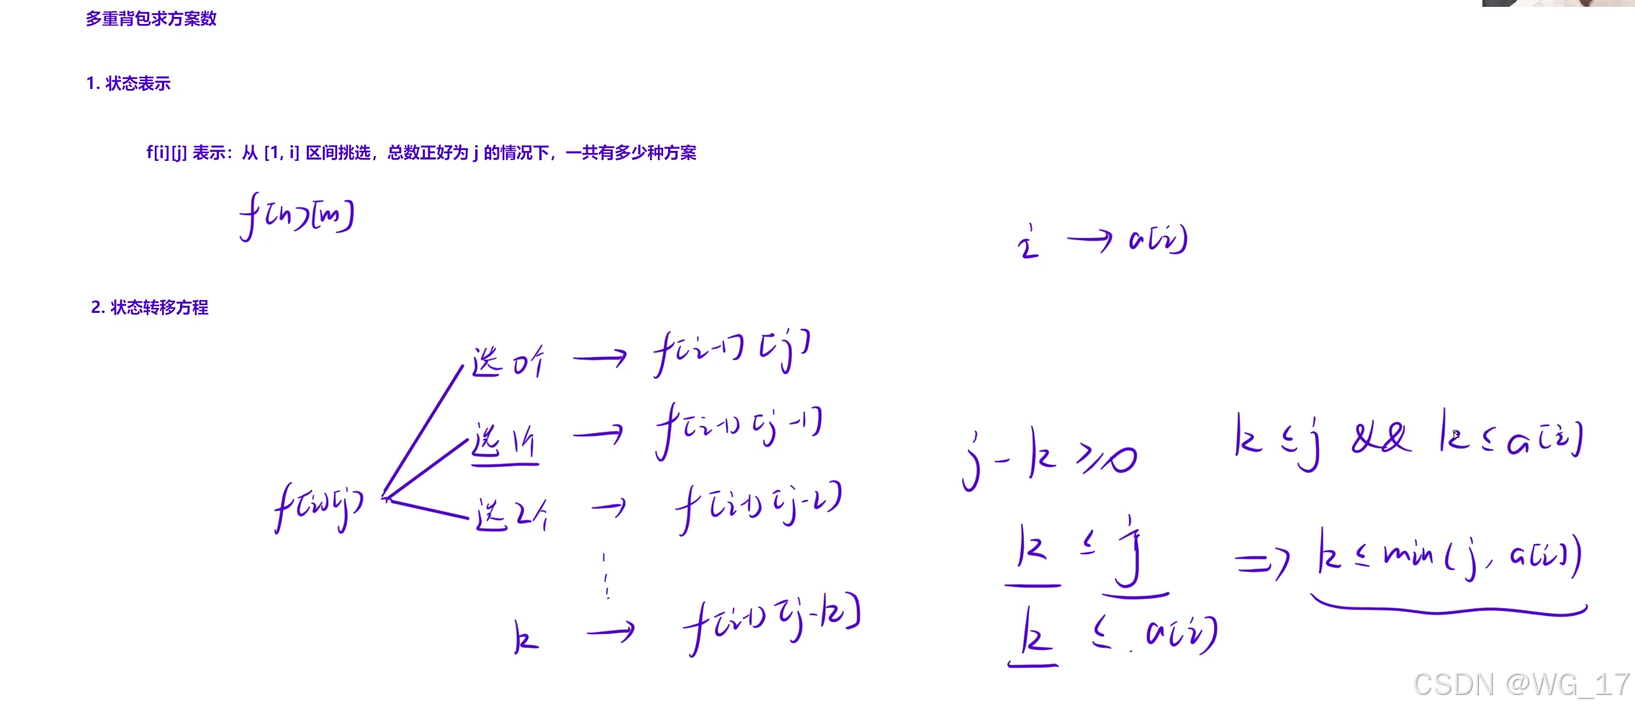 多重背包求方案数
1. 状态表示
f[i][j] 表示：从 [1, i] 区间挑选，总数正好为 j 的情况下，一共有多少种方案
f[n][m]
i → a[i]
2. 状态转移方程
f[i][j]
选0个 → f[i-1][j]
选1个 → f[i-1][j-1]
选2个 → f[i-1][j-2]
k → f[i-1][j-k]
j-k ≥ 0
k ≤ j
k ≤ a[i]
k ≤ j && k ≤ a[i]
=> k ≤ min(j, a[i])
CSDN @WG_17